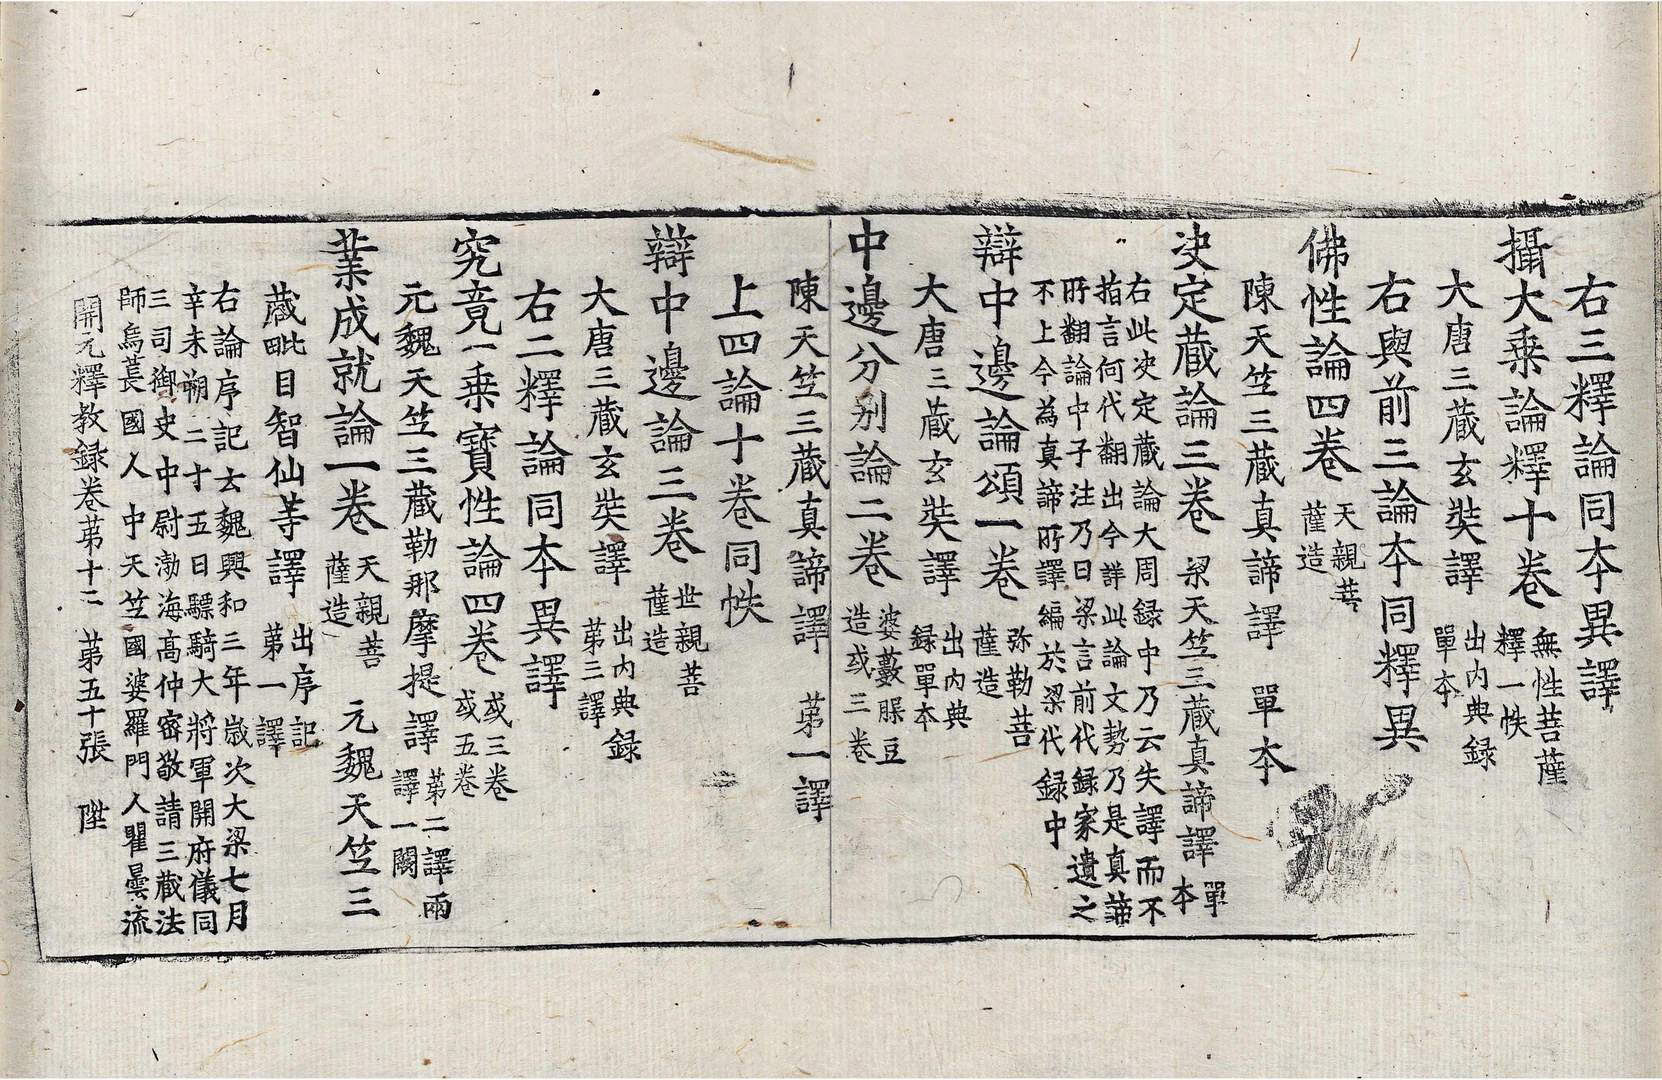 右三釋論同本異譯
攝大乗論釋十卷 無性菩薩釋一帙
大唐三藏玄奘譯 出内典録單本
右與前三論本同釋異
佛性論四卷 天親菩薩造
陳天竺三藏真諦譯 單本
决定藏論三卷 梁天竺三藏真諦譯 單本
右此决定藏論大周録中乃云失譯而不
指言何代翻出今詳此論文勢乃是真諦
所翻論中子注乃曰梁言前代録家遺之
不上今為真諦所譯編於梁代録中
辯中邊論頌一卷 弥勒菩薩造
大唐三藏玄奘譯 出内典録單本
中邊分别論二卷 婆藪槃豆造或三卷
陳天竺三藏真諦譯 第一譯
上四論十卷同帙
辯中邊論三卷 世親菩薩造
大唐三藏玄奘譯 出内典録第二譯
右二釋論同本異譯
究竟一乗寶性論四卷 或三卷或五卷
元魏天竺三藏勒那摩提譯 第二譯兩譯一闕
業成就論一卷 天親菩薩造 元魏天竺三
藏毗目智仙等譯 出序記第一譯
右論序記云魏興和三年歳次大梁七月
辛未朔二十五日驃騎大將軍開府儀同
三司御史中尉渤海高仲密敬請三藏法
師烏萇國人中天竺國婆羅門人瞿曇流
開元釋教録卷苐十二 苐五十張 陞